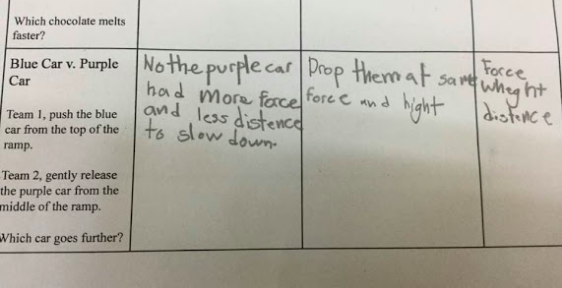 Which chocolate melts
faster?
Blue Car v. Purple
Car
Team 1, push the blue
car from the top of the
ramp.
Team 2, gently release
the purple car from the
middle of the ramp.
Which car goes further?
No the purple car
had more force
and less distence
to slow down.
Drop them at same
force and hight
Force
Wheght
distance